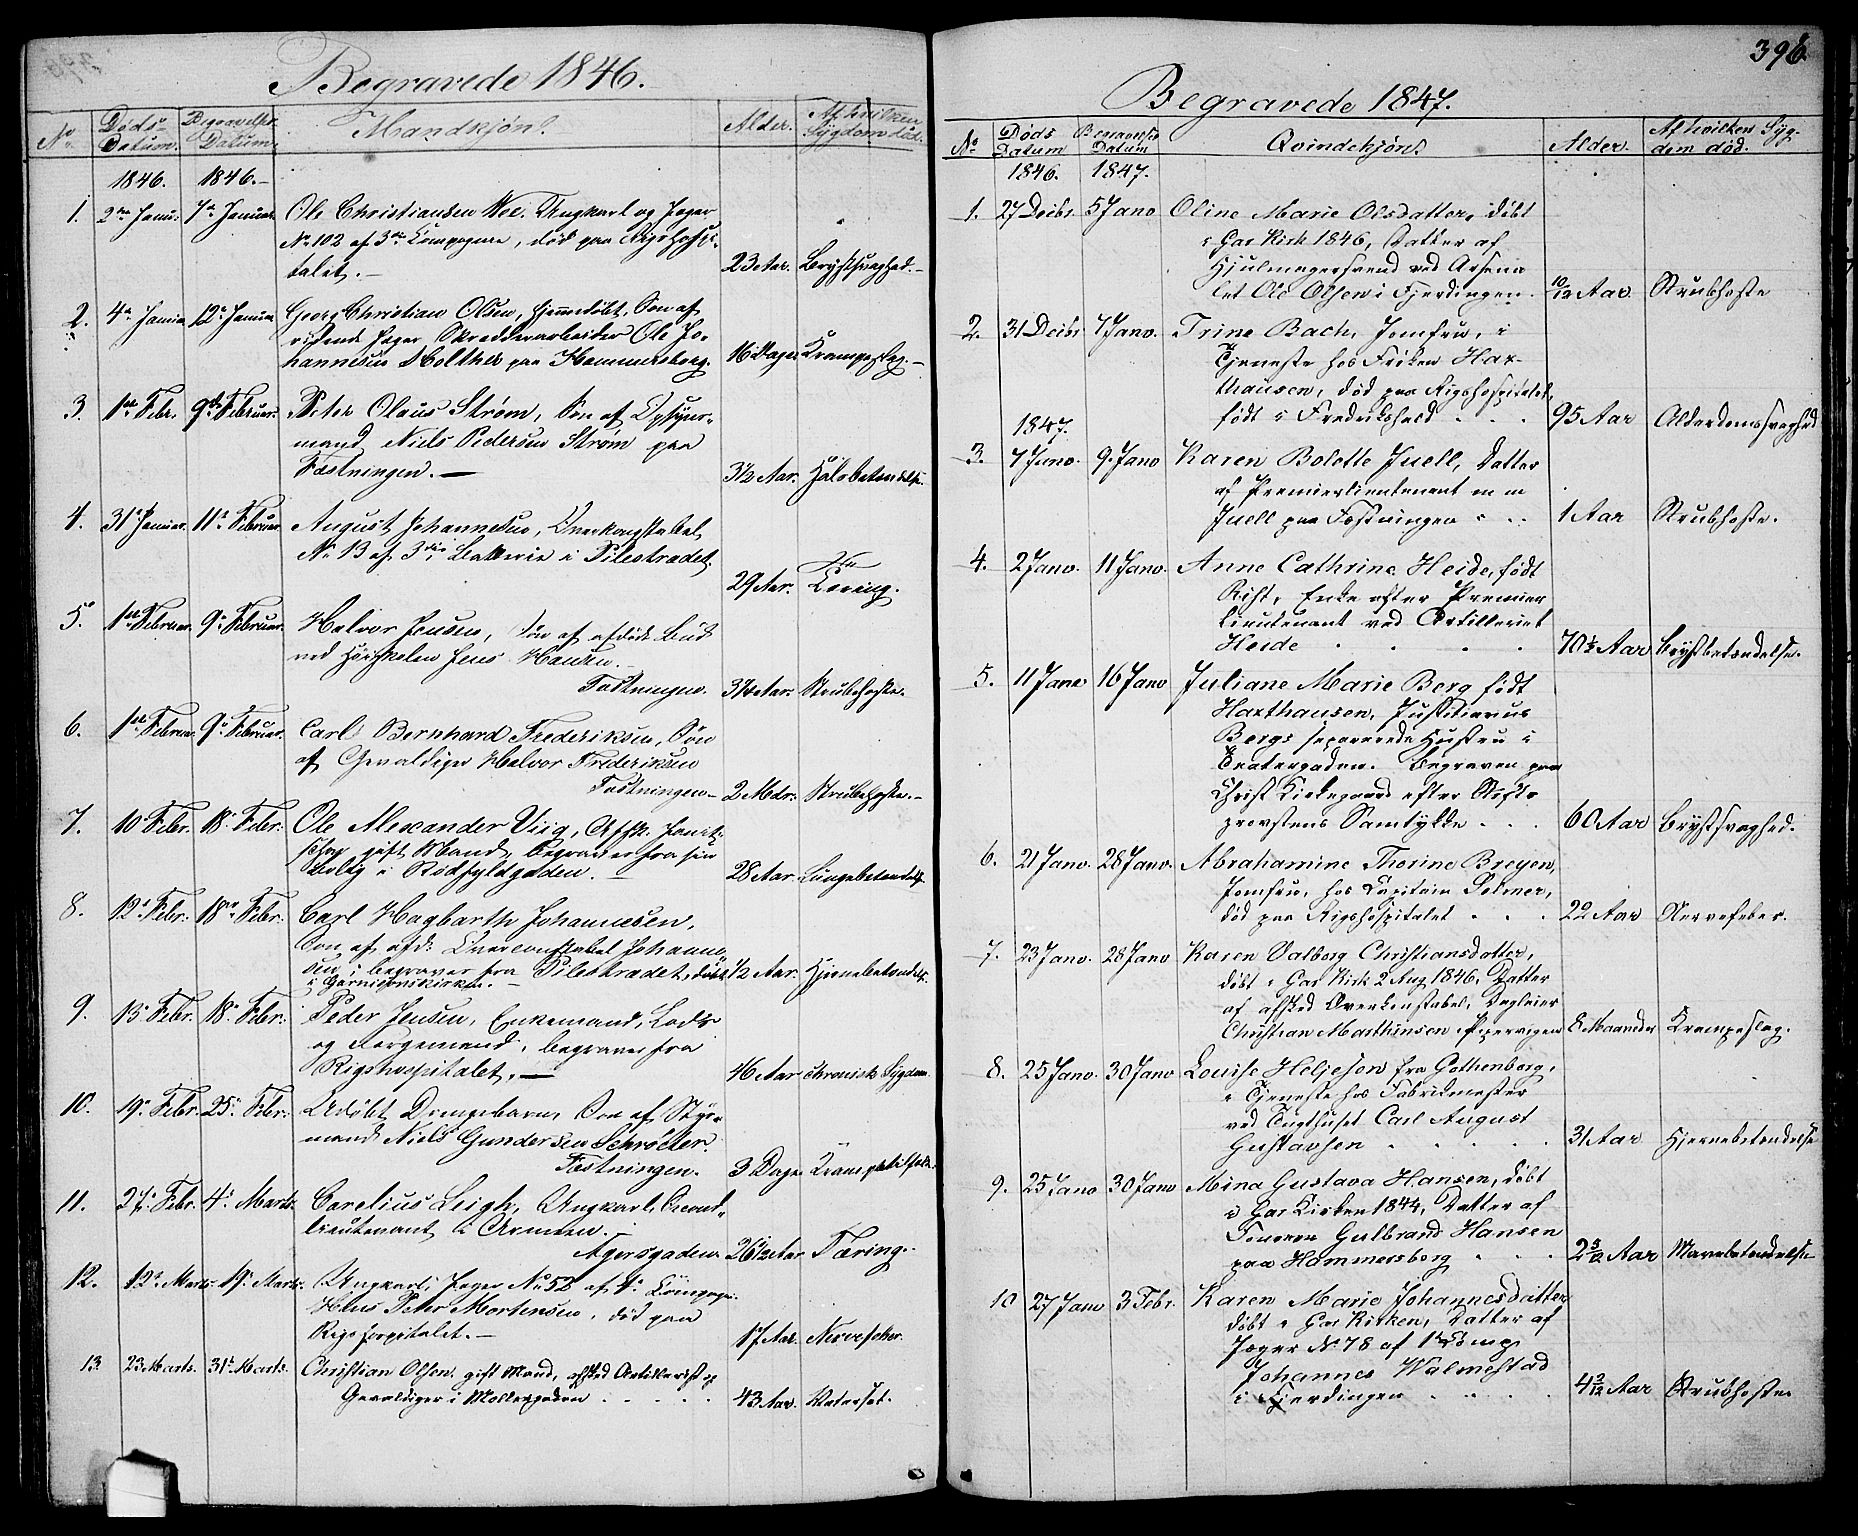 Begravede 1846.
No Døds-Datum. Begravelses Datum. Mandkjøn. Alder. Af hvilken Sygdom død.
1846. 1846.
1. 2den Januar 7de Januar Ole Christiansen Ungkarl og Jæger
No 102 af 3die Compagnie, død paa Rigshospi-
talet. 23 Aar. Brystsvaghed.
2. 4de Januar 12te Januar Georg Christian Olsen, hjemmedøbt, Søn af
ridende Jæger Skredderarbeider Ole Jo-
hannesen Molther paa Hammersborg. 16 Dage Krampeslag.
3. 1ste Febr. 9de Februar. Peter Olaus Strøm, Søn af
mand Niels Pedersen Strøm paa
Fæstningen. 3½ Aar. Halsbetændelse.
4. 31te Januar. 11te Februar. August Johannesen, Overkonstabel
No 13 af 3die Batterie i Pilestrædet.
29 Aar. Tæring.
5. 1ste Februar. 9de Februar. Halvor Jensen, Søn af afdøde Bud
ved Jens Hansen.
Fæstningen. 3¼ Aar. Strubehoste.
6. 1ste Februar 9de Februar. Carl Bernhard Frederiksen, Søn
af Gevaldiger Halvor Frederiksen
Fæstningen 2 Mdr. Strubehoste.
7. 10 Febr. 18 Febr. Ole Alexander Viig,
gift Mand, begraves fra sin
Bolig i Rødfyldgaden. 28 Aar Lungebetændelse.
8. 12te Febr. 18de Febr. Carl Hagbarth Johannesen,
Søn af afd. Overconstabel Johanne-
sen, begraves fra Pilestrædet, døbt
i Garnisonskirken. ½ Aar. Hjernebetændelse.
9. 13de Febr. 18de Febr. Peder Jensen, Enkemand, Lods
og Norgemand, begraves fra
Rigshospitalet. 46 Aar chronisk Sygdom.
10. 19de Febr. 25de Febr. Udøbt Drengebarn, Søn af Styr-
mand Niels Gundersen Schrøder.
Fæstningen. 3 Dage
11. 27de Febr. 4de Marts. Carelius Leigh, Ungkarl, Second-
lieutenant i Armeen.
Agersgaden. 26½ Aar Tæring.
12. 12te Marts. 19de Marts. Ungkarl, Jæger No 52 af 4de Compagni
Hans Peter Mortensen, død paa
Rigshospitalet. 17 Aar. Nervefeber.
13. 23 Marts. 31te Marts. Christian Olsen, gift Mand, afsked Artillerist og
Gevaldiger i Møllergaden 43 Aar. Vatersot.
396.
Begravede 1847.
No Døds Datum Begravelses Datum Qvindekjøn. Alder. Af hvilken Syg-
dom død.
1846. 1847.
1. 27 Decbr. 5 Janr. Oline Marie Olsdatter, døbt
i Gar Kirk 1846, Datter af
Hjulmagersvend ved Arsena
let Ole Olsen i Fjerdingen. 10/12 Aar Strubhoste
2. 31 Decbr. 7 Janr. Trine Bach, Jomfru, i
Tjeneste hos Frøken Hax-
thausen, død paa Rigshospitalet,
født i Fredrikshald 95 Aar Alderdomssvaghed
1847.
3. 7 Janr. 9 Janr. Karen Bolette Juell, Datter
af Premierlieutenant m m
Juell paa Fæstningen 1 Aar Strubhoste.
4. 2 Janr. 11 Janr. Anne Cathrine Heide, født
Rist, Enke efter Premier
Lieutenant ved Artilleriet
Heide 70½ Aar Brystbetændelse.
5. 11 Janr. 16 Janr. Juliane Marie Berg født
Haxthausen, Justitiarius
Bergs separerede Hustru i
Teatergaden. Begraven paa
Christ Kirkegaard efter Stifts
provstens Samtykke 60 Aar Brystsvaghed.
6. 21 Janr. 28 Janr. Abrahamine Therine Breyen,
Jomfru, hos Capitain Selmer,
død paa Rigshospitalet 22 Aar Nervefeber.
7. 23 Janr. 28 Janr. Karen Valborg Christiansdatter,
døbt i Gar Kirk 2 Aug 1846, Datter
af afsked Overkonstabel, Dagleier
Christian Marthinsen i Pipervigen 8 Maaneder Krampeslag.
8. 25 Janr. 30 Janr. Louise Heljesen fra Gothenborg,
i Tjeneste hos Fabrikmester
ved Tugthuset Carl August
Gustavsen 31 Aar Hjernebetændelse
9. 25 Janr. 30 Janr. Mina Gustava Hansen, døbt
i Gar Kirken 1844, Datter af
Foureer Gulbrand Hansen
paa Hammersborg 2 5/12 Aar Mavebetændelse
10 27 Janr 3 Febr. Karen Marie Johannesdatter
døbt i Gar Kirken, Datter af
Jæger No 78 af 1ste Comp
Johannes Walmestad
i Fjerdingen 4 2/12 Aar Strubhoste